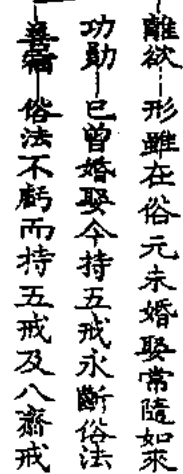 離欲—形雖在俗元未婚娶常隨如來
功勛—已曾婚娶今持五戒永斷俗法
善宿—俗法不虧而持五戒及八齋戒